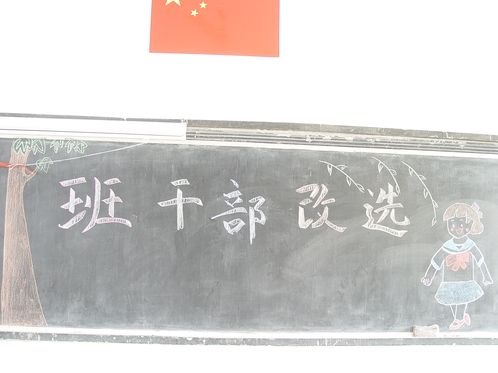 班干部改选